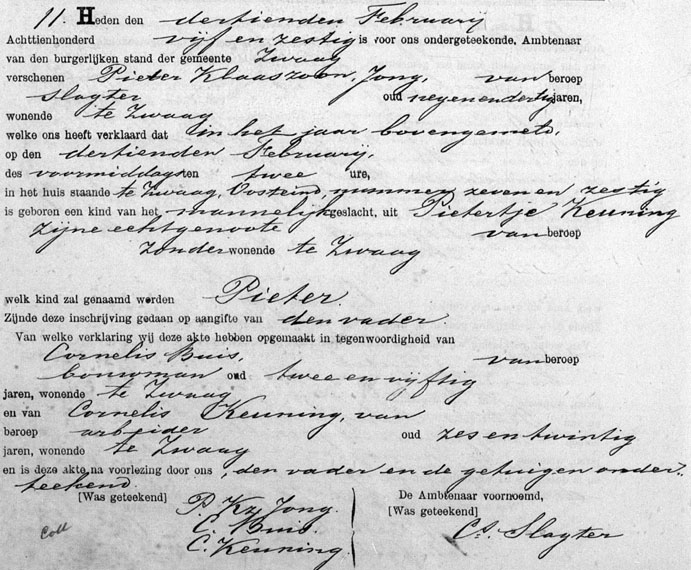 11. Heden den dertienden February
Achttienhonderd vijf en zestig is voor ons ondergeteekende, Ambtenaar
van den burgerlijken stand der gemeente Zwaag
verschenen Pieter Klaaszoon Jong, van beroep
slagter oud negenendertig jaren,
wonende te Zwaag
welke ons heeft verklaard dat in het jaar bovengemeld,
op den dertienden February,
des voormiddags ten twee ure,
in het huis staande te Zwaag, Oosteind, nummer zeven en zestig
is geboren een kind van het mannelijk geslacht, uit Pietertje Keuning
zijne echtgenoote van beroep
zonder wonende te Zwaag
welk kind zal genaamd worden Pieter.
Zijnde deze inschrijving gedaan op aangifte van den vader
Van welke verklaring wij deze akte hebben opgemaakt in tegenwoordigheid van
Cornelis Buis, van beroep
bouwman oud twee en vijftig
jaren, wonende te Zwaag
en van Cornelis Keuning, van
beroep arbeider oud zes en twintig
jaren, wonende te Zwaag
en is deze akte, na voorlezing door ons, den vader en de getuigen onder„
teekend.
[Was geteekend] P. Kz. Jong.
C. Buis.
C. Keuning.
De Ambtenaar voornoemd,
[Was geteekend]
Cs. Slagter
Coll